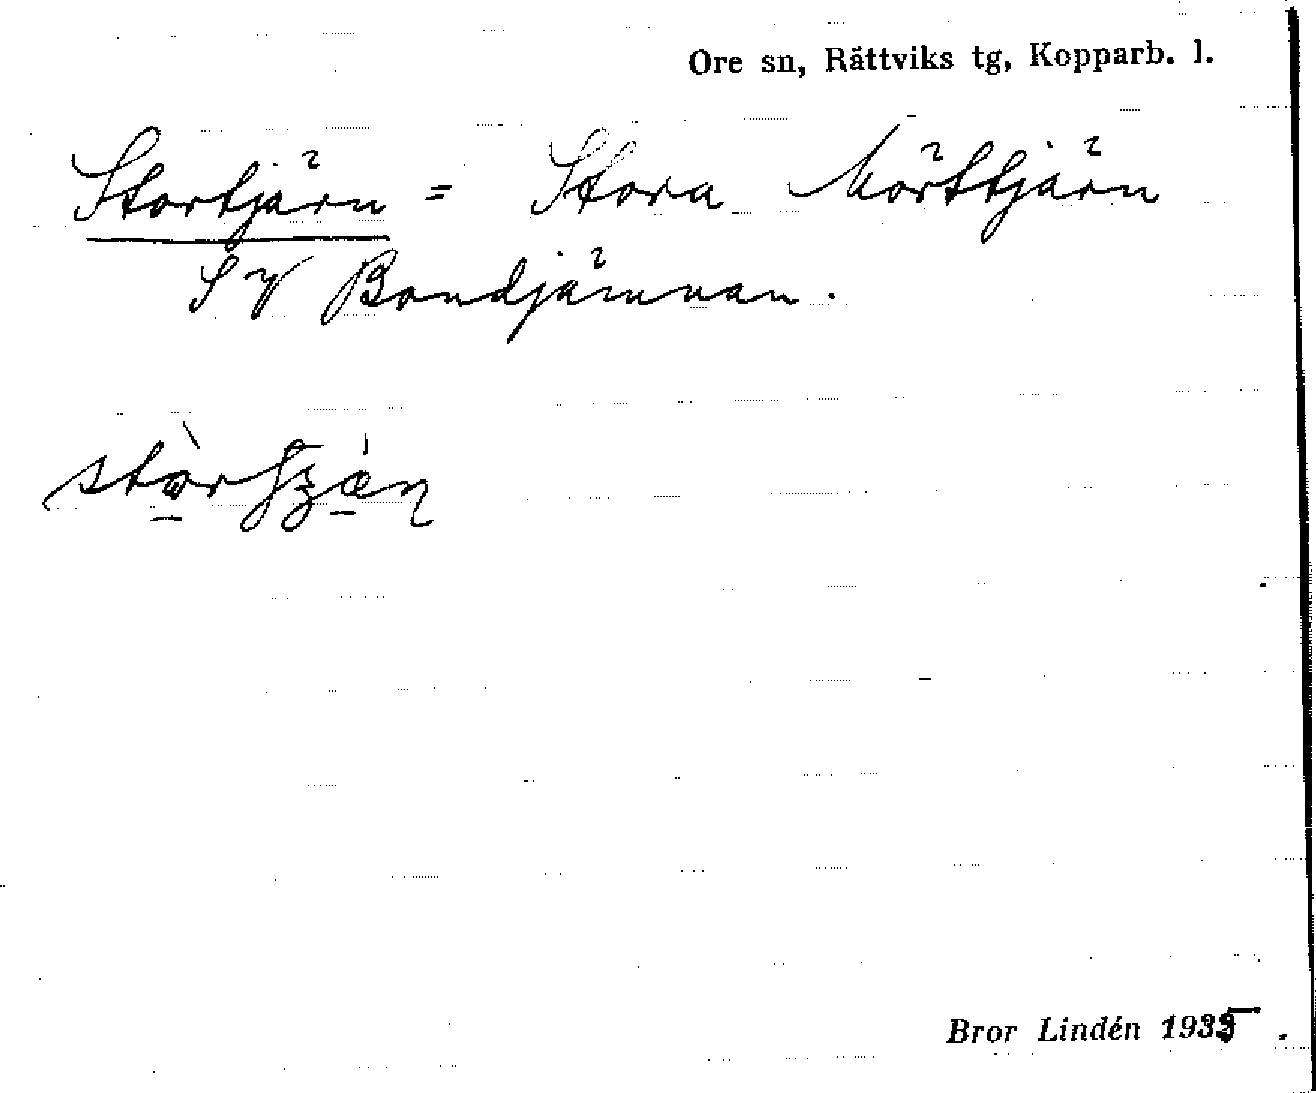 Ore sn, Rättviks tg, Kopparb. l.
Stortjärn = Stora Mörttjärn
SV Bondjämnan.
Bror Lindén 1935.